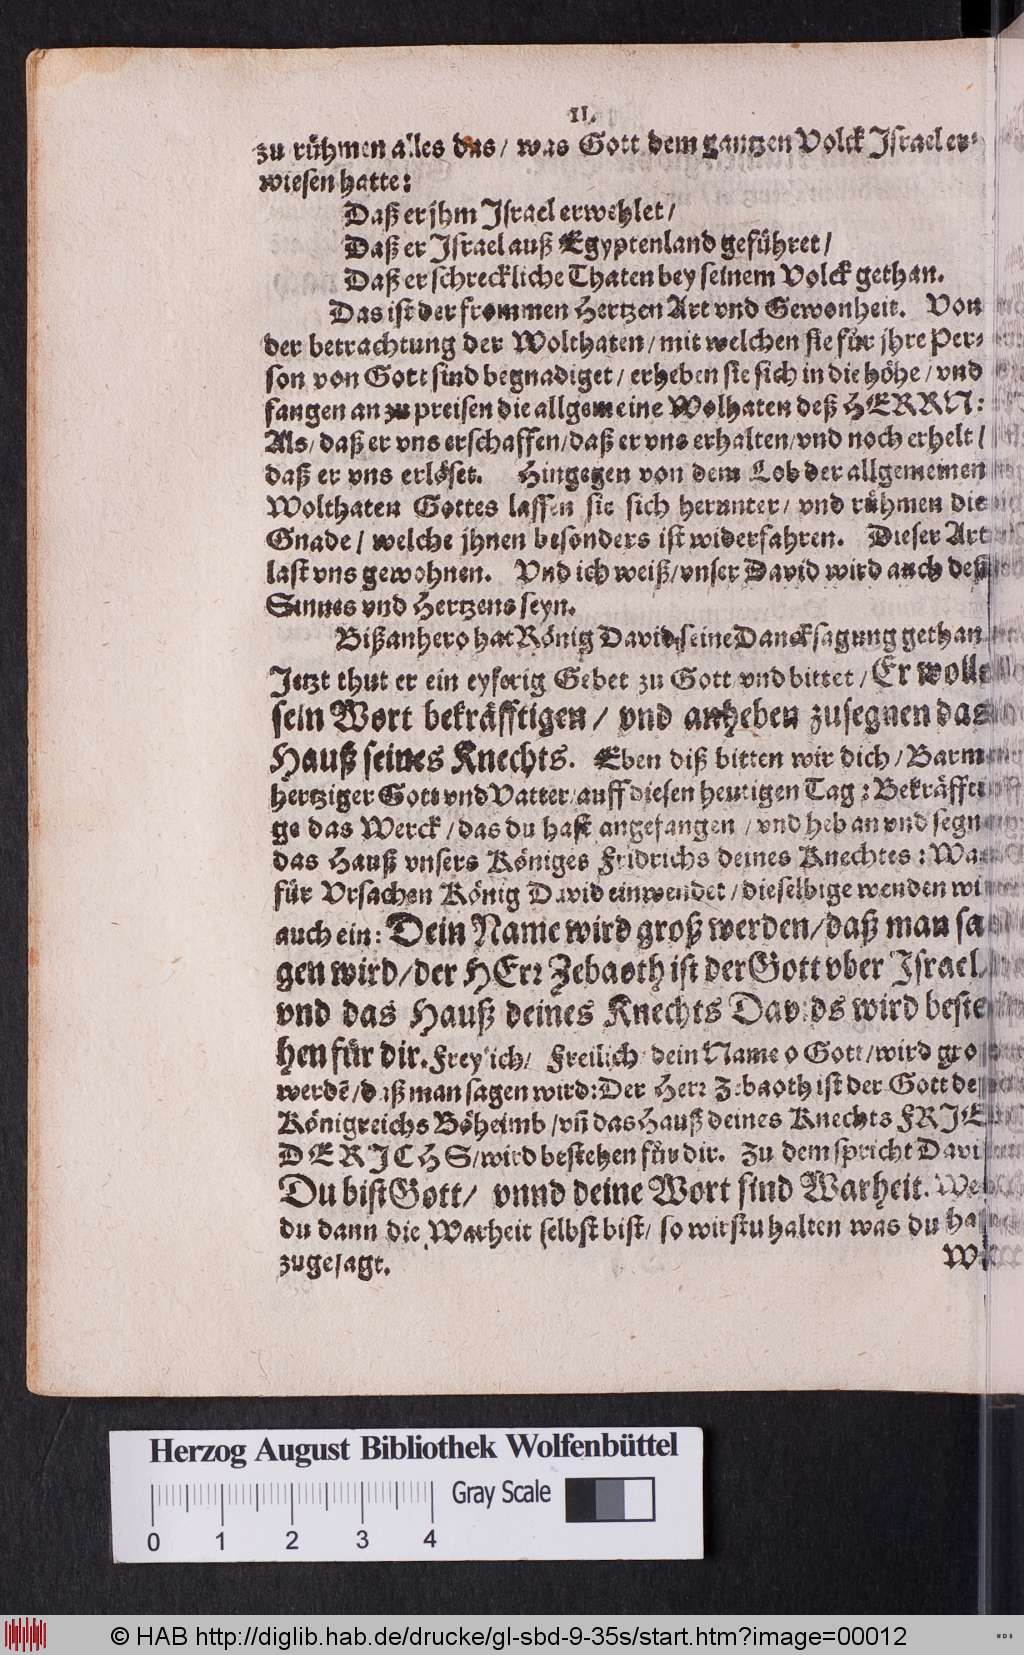 11.
zu rühmen alles das / was Gott dem gantzen Volck Israel er-
wiesen hatte:
Daß er jhm Israel erwehlet /
Daß er Israel auß Egyptenland geführet /
Daß er schreckliche Thaten bey seinem Volck gethan.
Das ist der frommen Hertzen Art vnd Gewonheit. Von
der betrachtung der Wolthaten / mit welchen sie für jhre Per-
son von Gott sind begnadiget / erheben sie sich in die höhe / vnd
fangen an zu preisen die allgemeine Wolhaten deß HERRN:
Als / daß er vns erschaffen / daß er vns erhalten / vnd noch erhelt /
daß er vns erlöset. Hingegen von dem Lob der allgemeinen
Wolthaten Gottes lassen sie sich herunter / vnd rühmen die
Gnade / welche jhnen besonders ist widerfahren. Dieser Art
last vns gewohnen. Vnd ich weiß / vnser David wird auch deß
Sinnes vnd Hertzens seyn.
Biß anhero hat König David seine Dancksagung gethan
Jetzt thut er ein eyferig Gebet zu Gott vnd bittet / Er wolle
sein Wort bekräfftigen / vnd anheben zusegnen das
Hauß seines Knechts. Eben diß bitten wir dich / Barm
hertziger Gott vnd Vatter / auff diesen heutigen Tag: Bekräffti
ge das Werck / das du hast angefangen / vnd heb an vnd segn
das Hauß vnsers Königes Fridrichs deines Knechtes: Wa
für Vrsachen König David einwendet / dieselbige wenden wi
auch ein: Dein Name wird groß werden / daß man sa
gen wird / der HErꝛ Zebaoth ist der Gott vber Israel /
vnd das Hauß deines Knechts Davids wird beste
hen für dir. Freylich / Freilich dein Name o Gott / wird gro
werdẽ / daß man sagen wird: Der Herꝛ Zebaoth ist der Gott de
Königreichs Böheimb / vñ das Hauß deines Knechts FRIE
DERICHS / wird bestehen für dir. Zu dem spricht Davi
Du bist Gott / vnnd deine Wort sind Warheit. We
du dann die Warheit selbst bist / so wirstu halten was du ha
zugesagt.
W
Herzog August Bibliothek Wolfenbüttel
Gray Scale
0 1 2 3 4
© HAB http://diglib.hab.de/drucke/gl-sbd-9-35s/start.htm?image=00012